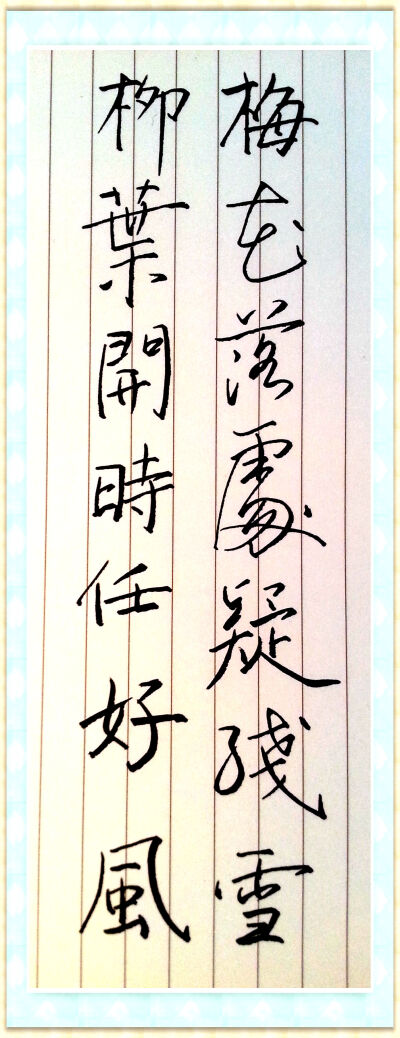 梅花落處疑殘雪
柳葉開時任好風